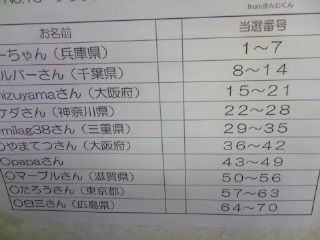 fromまんじくん
お名前 当選番号
ーちゃん（兵庫県） 1～7
ルバーさん（千葉県） 8～14
mizuyamaさん（大阪府） 15～21
ケダさん（神奈川県） 22～28
omilag38さん（三重県） 29～35
○やまてつさん（大阪府） 36～42
○papaさん 43～49
○マーブルさん（滋賀県） 50～56
○たろうさん（東京都） 57～63
○白三さん（広島県） 64～70